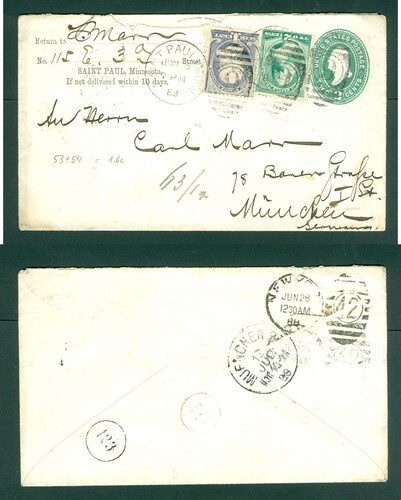 Return to C. Marr
No. 115 E. 3d Street.
SAINT PAUL, Minnesota,
If not delivered within 10 days.
ST PAUL
JUN
PM
88
2
UNITED STATES POSTAGE
TWO CENTS
An Herrn
Carl Marr
78 Barer Straße
I St.
München
Germany
53+54 = 1.60
63/12
NEW
JUN 28
1230AM
88
42
MUENCHEN
88
123